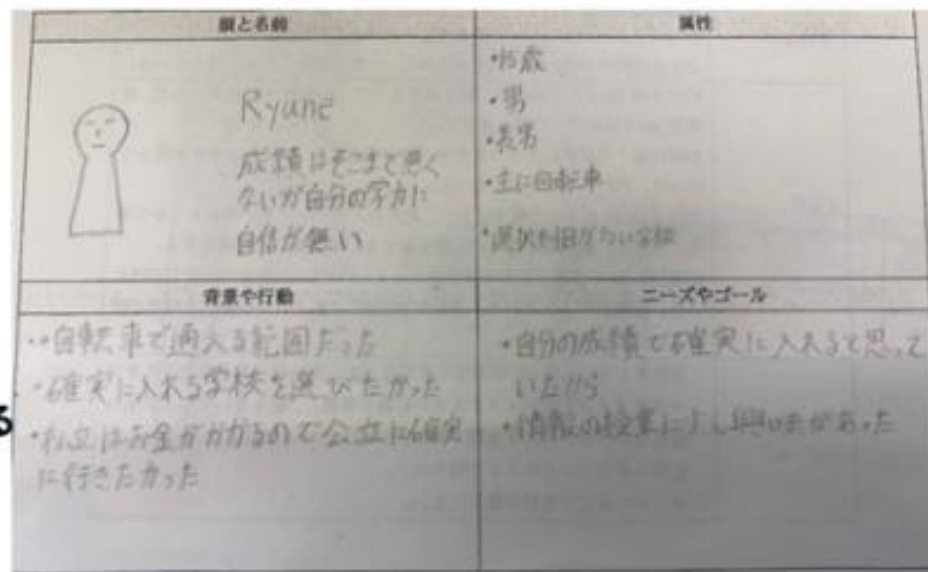 顔と名前
Ryune
成績はそこまで悪く
ないが自分の学力に
自信が無い
属性
・15歳
・男
・長男
・主に自転車
・選択や国がない学校
背景や行動
・自転車で通える範囲だった
・確実に入れる学校を選びたかった
・私立はお金がかかるので公立に確実
に行きたかった
ニーズやゴール
・自分の成績で確実に入れると思って
いたから
・情報の授業に少し興味があった
る